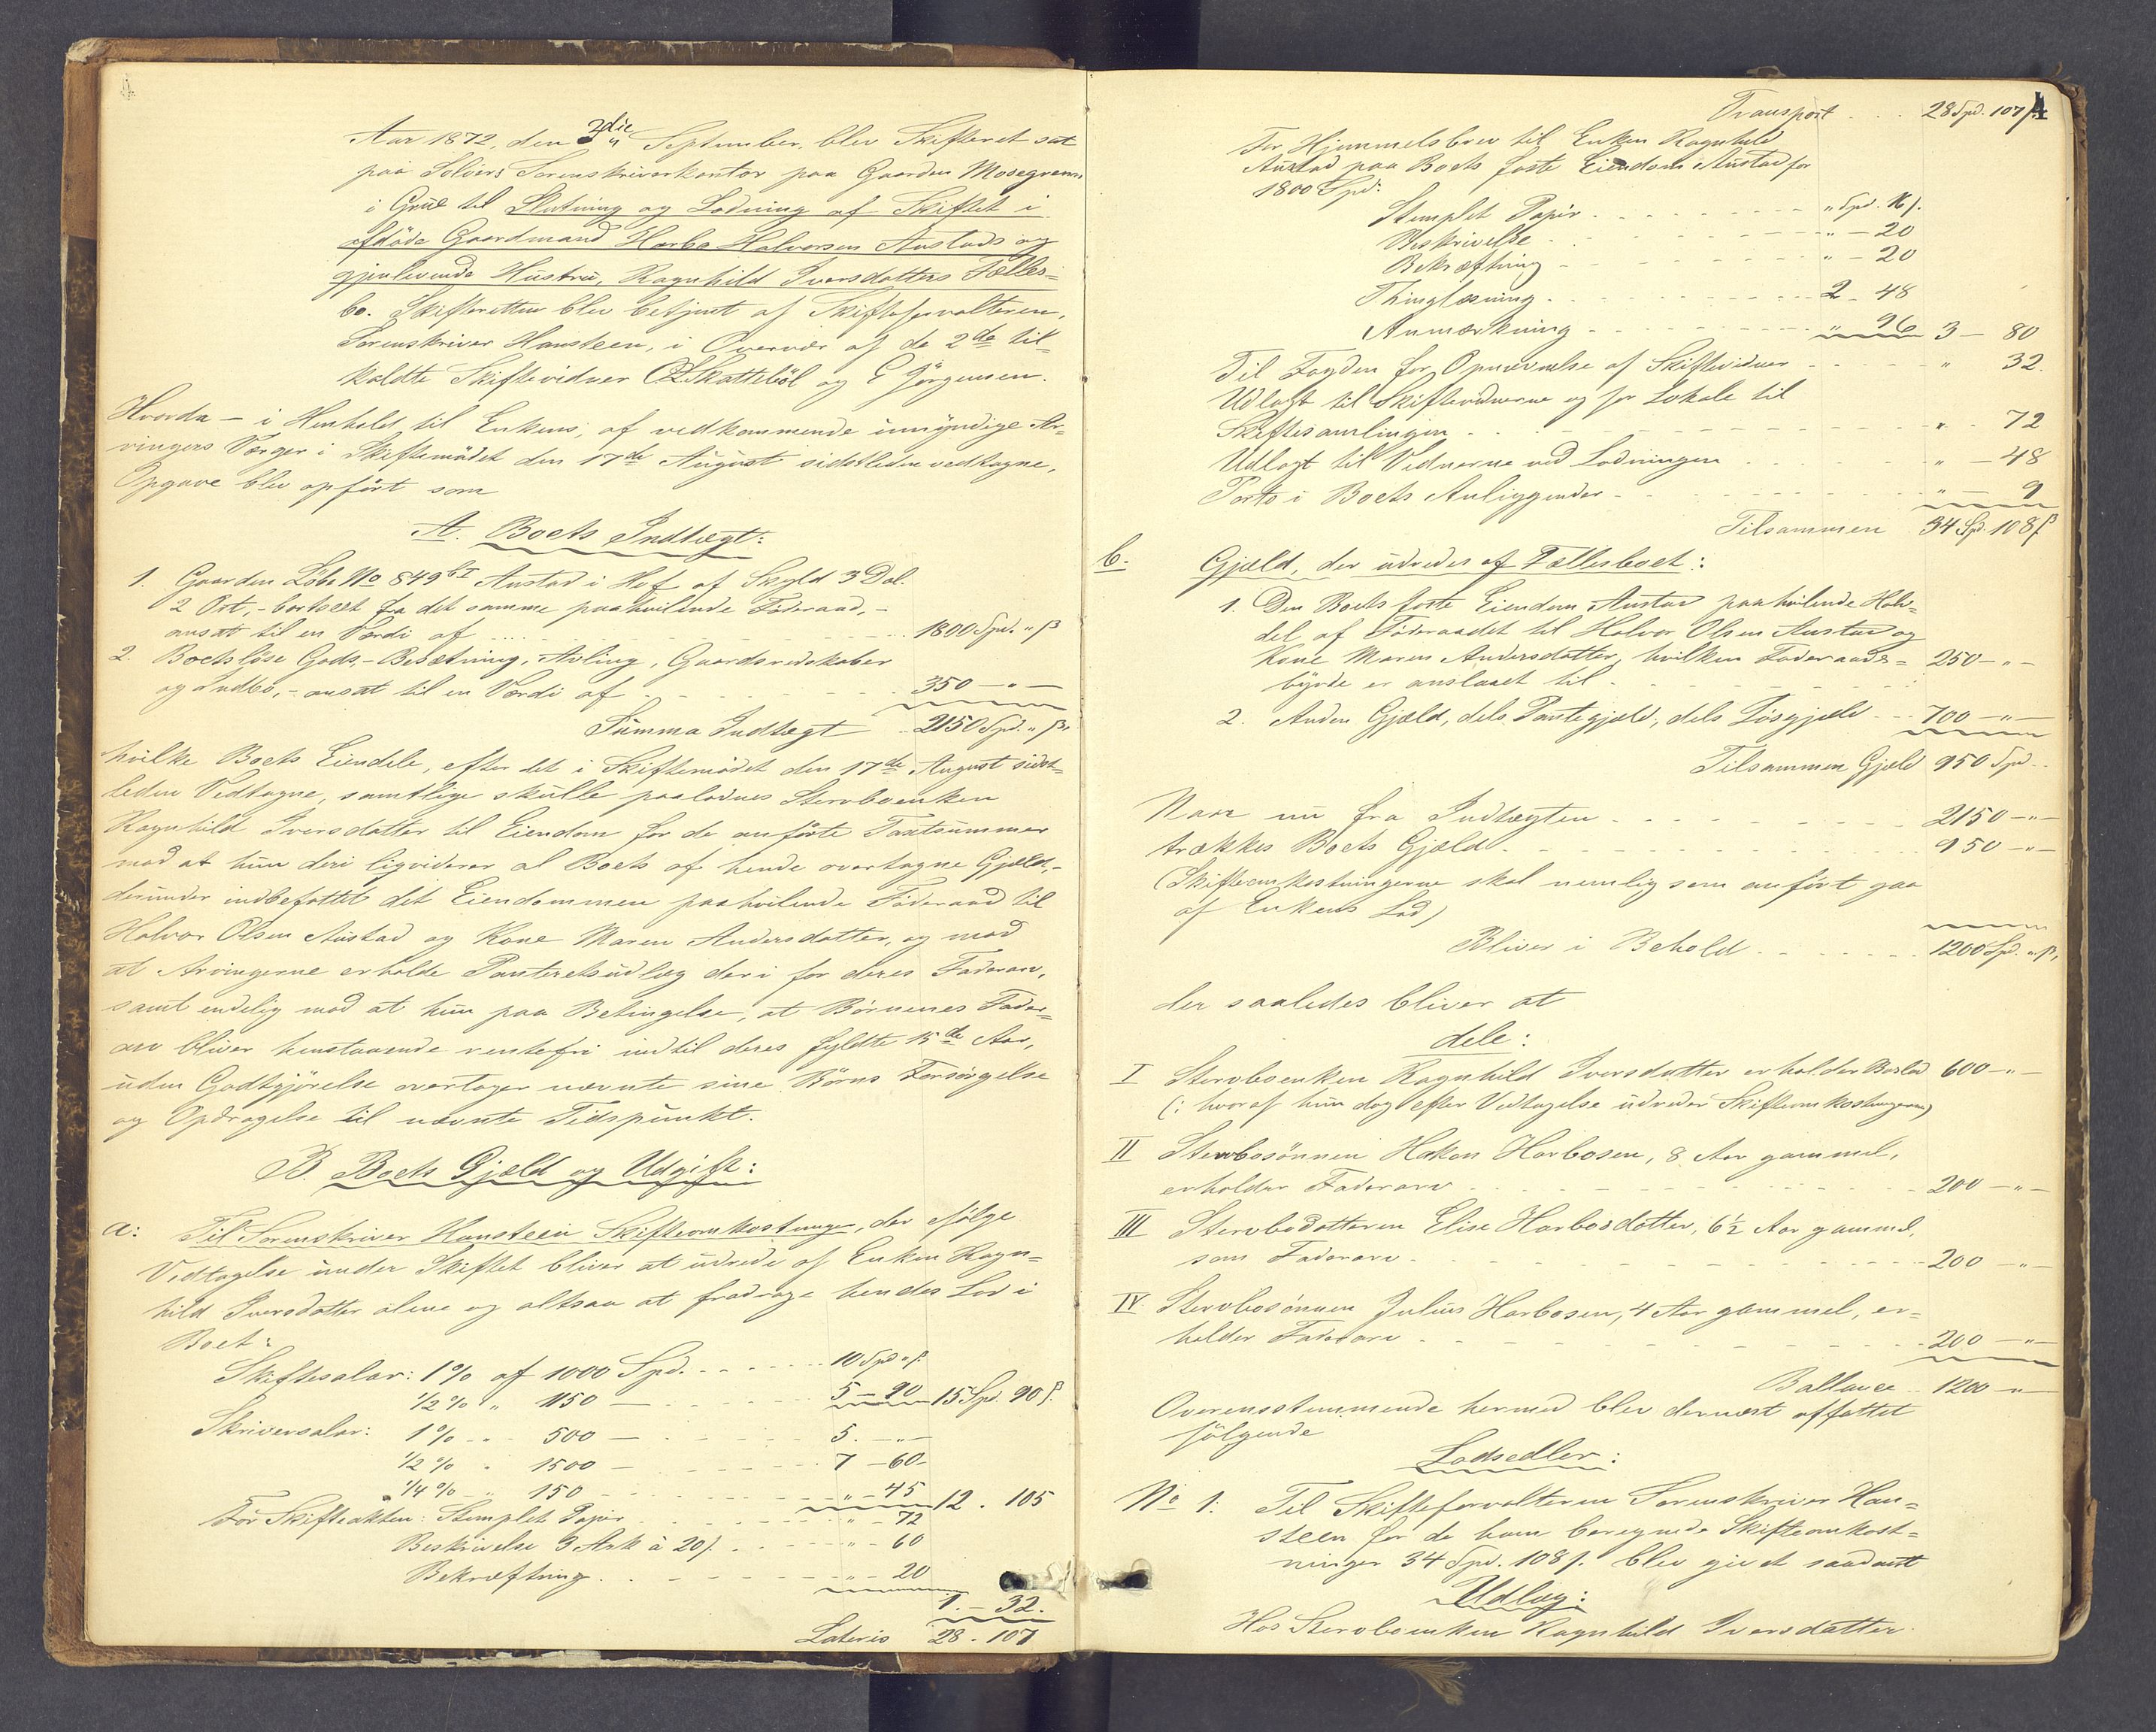 Aar 1872, den 3die September, blev Skifteret sat
paa Solörs Sorenskriverkontor paa Gaarden Mosegrenen
i Grue til Slutning og Lodning af Skiftet i
afdöde Gaardmand Harbo Halvorsen Austads og
gjenlevende Hustru, Ragnhild Iversdatters Fælles-
bo. Skifteretten blev betjent af Skifteforvalteren,
Sorenskriver Hansteen, i Overvær af de 2de til-
kaldte Skiftevidner Skatteböl og E Jörgensen.
Hvorda – i Henhold til Enkens, af vedkommende umyndige Ar-
vingers Værger i Skiftemödet den 17de August sidstleden vedtagne,
Opgave blev opfört som
A. Boets Indtægt:
1. Gaarden Löbe No 849 bI Austad i Hof af Skyld 3 Dal.
2 Ort, – bortseet fra det samme paahvilende Föderaad, –
ansat til en Værdi af . . . 1800 Spd. " ß
2. Boets löse Gods, – Besætning, Avling, Gaardsredskaber
og Indbo, – ansat til en Værdi af . . . 350 – " –
Summa Indtægt . . 2150 Spd. " ß,
hvilke Boets Eiendele, efter det i Skiftemödet den 17de August sidst-
leden Vedtagne, samtlige skulle paalodnes Stervboenken
Ragnhild Iversdatter til Eiendom for de anförte Taxtsummer
mod at hun deri ligviderer al Boets af hende overtagne Gjæld, –
derunder indbefattet det Eiendommen paahvilende Föderaad til
Halvor Olsen Austad og Kone Maren Andersdatter, og mod
at Arvingerne erholde Panteretsudlæg deri for deres Fadorarv,
samt endelig mod at hun paa Betingelse, at Börnenes Fador-
arv bliver henstaaende rentefri indtil deres fyldte 15de Aar,
uden Godtgjörelse overtager nævnte sine Börns Forsörgelse
og Opdragelse til nævnte Tidspunkt.
B. Boets Gjæld og Udgift:
a: Til Sorenskriver Hansteen Skifteomkostninger, der ifölge
Vedtagelse under Skiftet bliver at udrede af Enken Ragn-
hild Iversdatter alene og altsaa at fradrage hendes Lod i
Boet:
Skiftesalær: 1% af 1000 Spd. . . . 10 Spd " ß.
1/2 % " 1150 – . . . 5 – 90 15 Spd. 90 ß.
Skriversalær: 1% . . 500 – . . . 5. – " –
1/2 % " 1500 – . . . 7 – 60 –
1/4 % – " 150 – . . . " – 45 12 . 105
For Skifteakten: Stemplet Papir . . . " – 72
Beskrivelse 3 Ark à 20 ß. . . . " – 60
Bekræftning . . . " – 20
1. – 32.
Lateris 28 . 107
Transport . . . 28 Spd. 107 ß.
4
For Hjemmelsbrev til Enken Ragnhild
Austad paa Boets faste Eiendom Austad for
1800 Spd:
Stemplet Papir . . . " Spd. 16 ß.
Beskrivelse . . . " – 20
Bekræftning . . . " – 20
Thinglæsning . . . 2 – 48
Anmærkning . . . " 96 3 – 80
Til Fogden for Opnævnelse af Skiftevidner . . . " 32.
Udlagt til Skiftevidnerne og for Lokale til
Skiftesamlingen . . . " – 72
Udlagt til Vidnerne ved Lodningen . . . " – 48
Porto i Boets Anliggender . . . " – 9
Tilsammen 34 Spd. 108 ß
b. Gjæld, der udredes af Fællesboet:
1. Den Boets faste Eiendom Austad paahvilende Halv-
del af Föderaadet til Halvor Olsen Austad og
Kone Maren Andersdatter, hvilken Föderaads- 250 – " –
byrde er anslaaet til . . .
2. Anden Gjæld, dels Pantegjæld, dels Lösgjæld . . 700 – " –
Tilsammen Gjæld 950 Spd . .
Naar nu fra Indtægten . . . 2150 – " –
trækkes Boets Gjæld . . . 950 – " –
(Skifteomkostningerne skal nemlig som anfört gaa
af Enkens Lod)
Bliver i Behold . . . 1200 Spd. " ß,
der saaledes bliver at
dele:
I Stervboenken Ragnhild Iversdatter erholder Boslod 600 – " –
(: hvoraf hun dog efter Vedtagelse udreder Skifteomkostningerne)
II Stervbosönnen Hakon Harbosen, 8 Aar gammel,
erholder Fadorarv . . . 200 – " –
III Stervbodatteren Elise Harbosdatter, 6½ Aar gammel,
som Fadorarv . . . 200 – " –
IV. Stervbosönnen Julius Harbosen, 4 Aar gammel, er-
holder Fadorarv . . . 200 – " –
Ballance . . 1200 – " –
Overensstemmende hermed blev dernæst affattet
fölgende
Lodsedler:
No 1: Til Skifteforvalteren Sorenskriver Han-
steen for de ham beregnede Skifteomkost-
ninger 34 Spd. 108 ß. blev givet saadant
Udlæg:
Hos Stervboenken Ragnhild Iversdatter